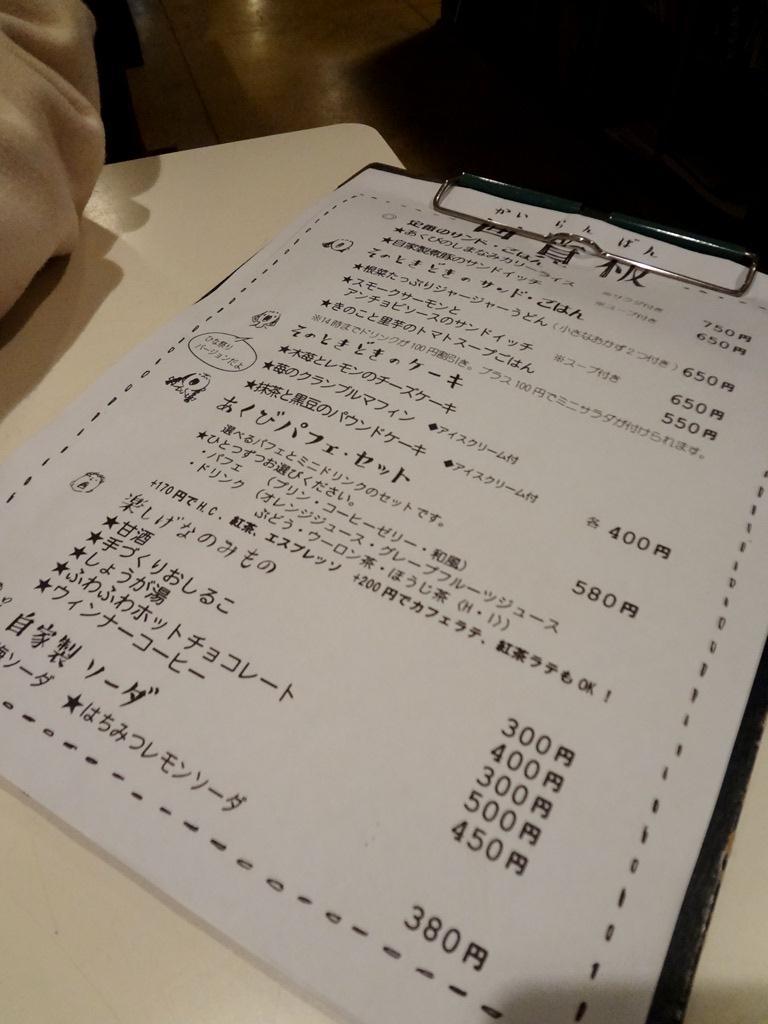 かいらんばん
回覧板
定番のサンド・ごはん
★あくびのしまなみカレーライス ※サラダ付き 750円
★自家製燻豚のサンドイッチ ※スープ付き 650円
そのときどきのサンド・ごはん
★根菜たっぷりジャージャーうどん（小さなおかず2つ付き）650円
★スモークサーモンと
アンチョビソースのサンドイッチ ※スープ付き 650円
★きのこと里芋のトマトスープごはん 550円
※14時までドリンクが100円割引き。プラス100円でミニサラダが付けられます。
そのときどきのケーキ
ひな祭り
バージョンだよ
★木苺とレモンのチーズケーキ
★苺のクランブルマフィン ◆アイスクリーム付
★抹茶と黒豆のパウンドケーキ ◆アイスクリーム付
各 400円
あくびパフェ・セット
選べるパフェとミニドリンクのセットです。
★ひとつずつお選びください。 580円
・パフェ （プリン・コーヒーゼリー・和風）
・ドリンク （オレンジジュース・グレープフルーツジュース
ぶどう・ウーロン茶・ほうじ茶（H・I））
+170円でH.C、紅茶、エスプレッソ +200円でカフェラテ、紅茶ラテもOK！
楽しげなのみもの
★甘酒 300円
★手づくりおしるこ 400円
★しょうが湯 300円
★ふわふわホットチョコレート 500円
★ウィンナーコーヒー 450円
自家製ソーダ
ソーダ ★はちみつレモンソーダ 380円